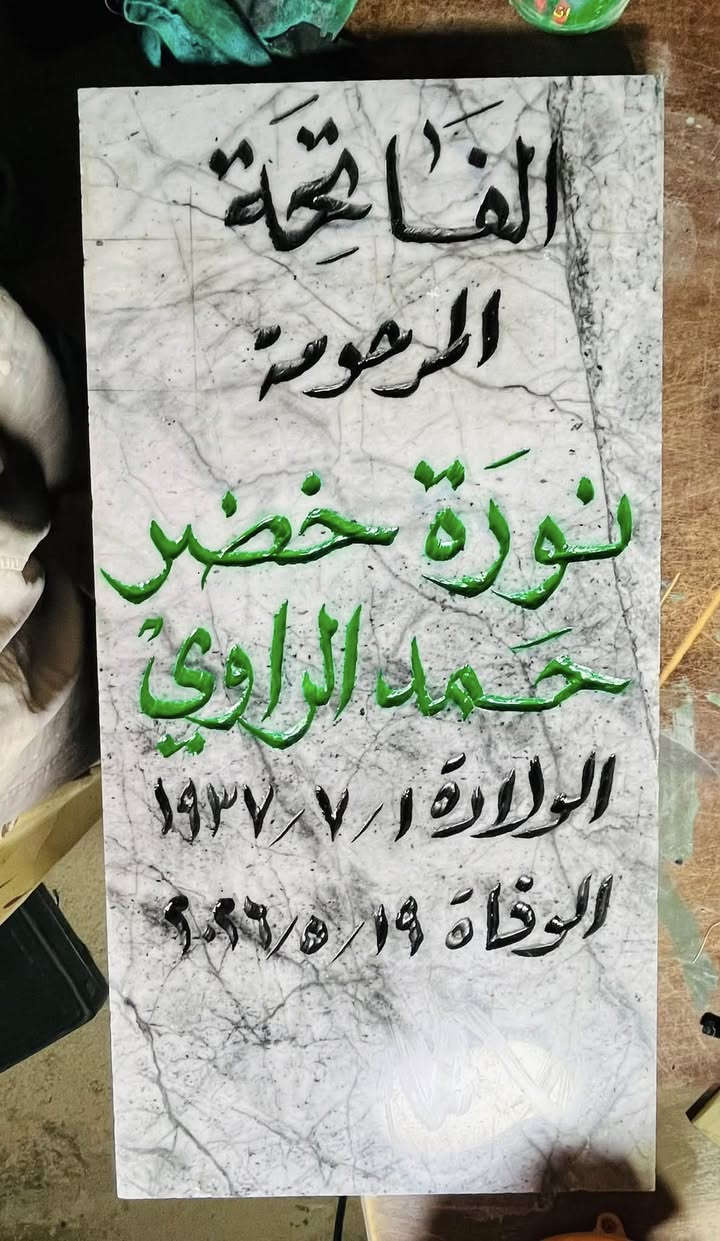 الفَاتِحَة
المرحومة
نورَة خضر
حَمد الراوي
الولادة ١/٧/١٩٣٧
الوفاة ١٩/٥/٢٠٢٦